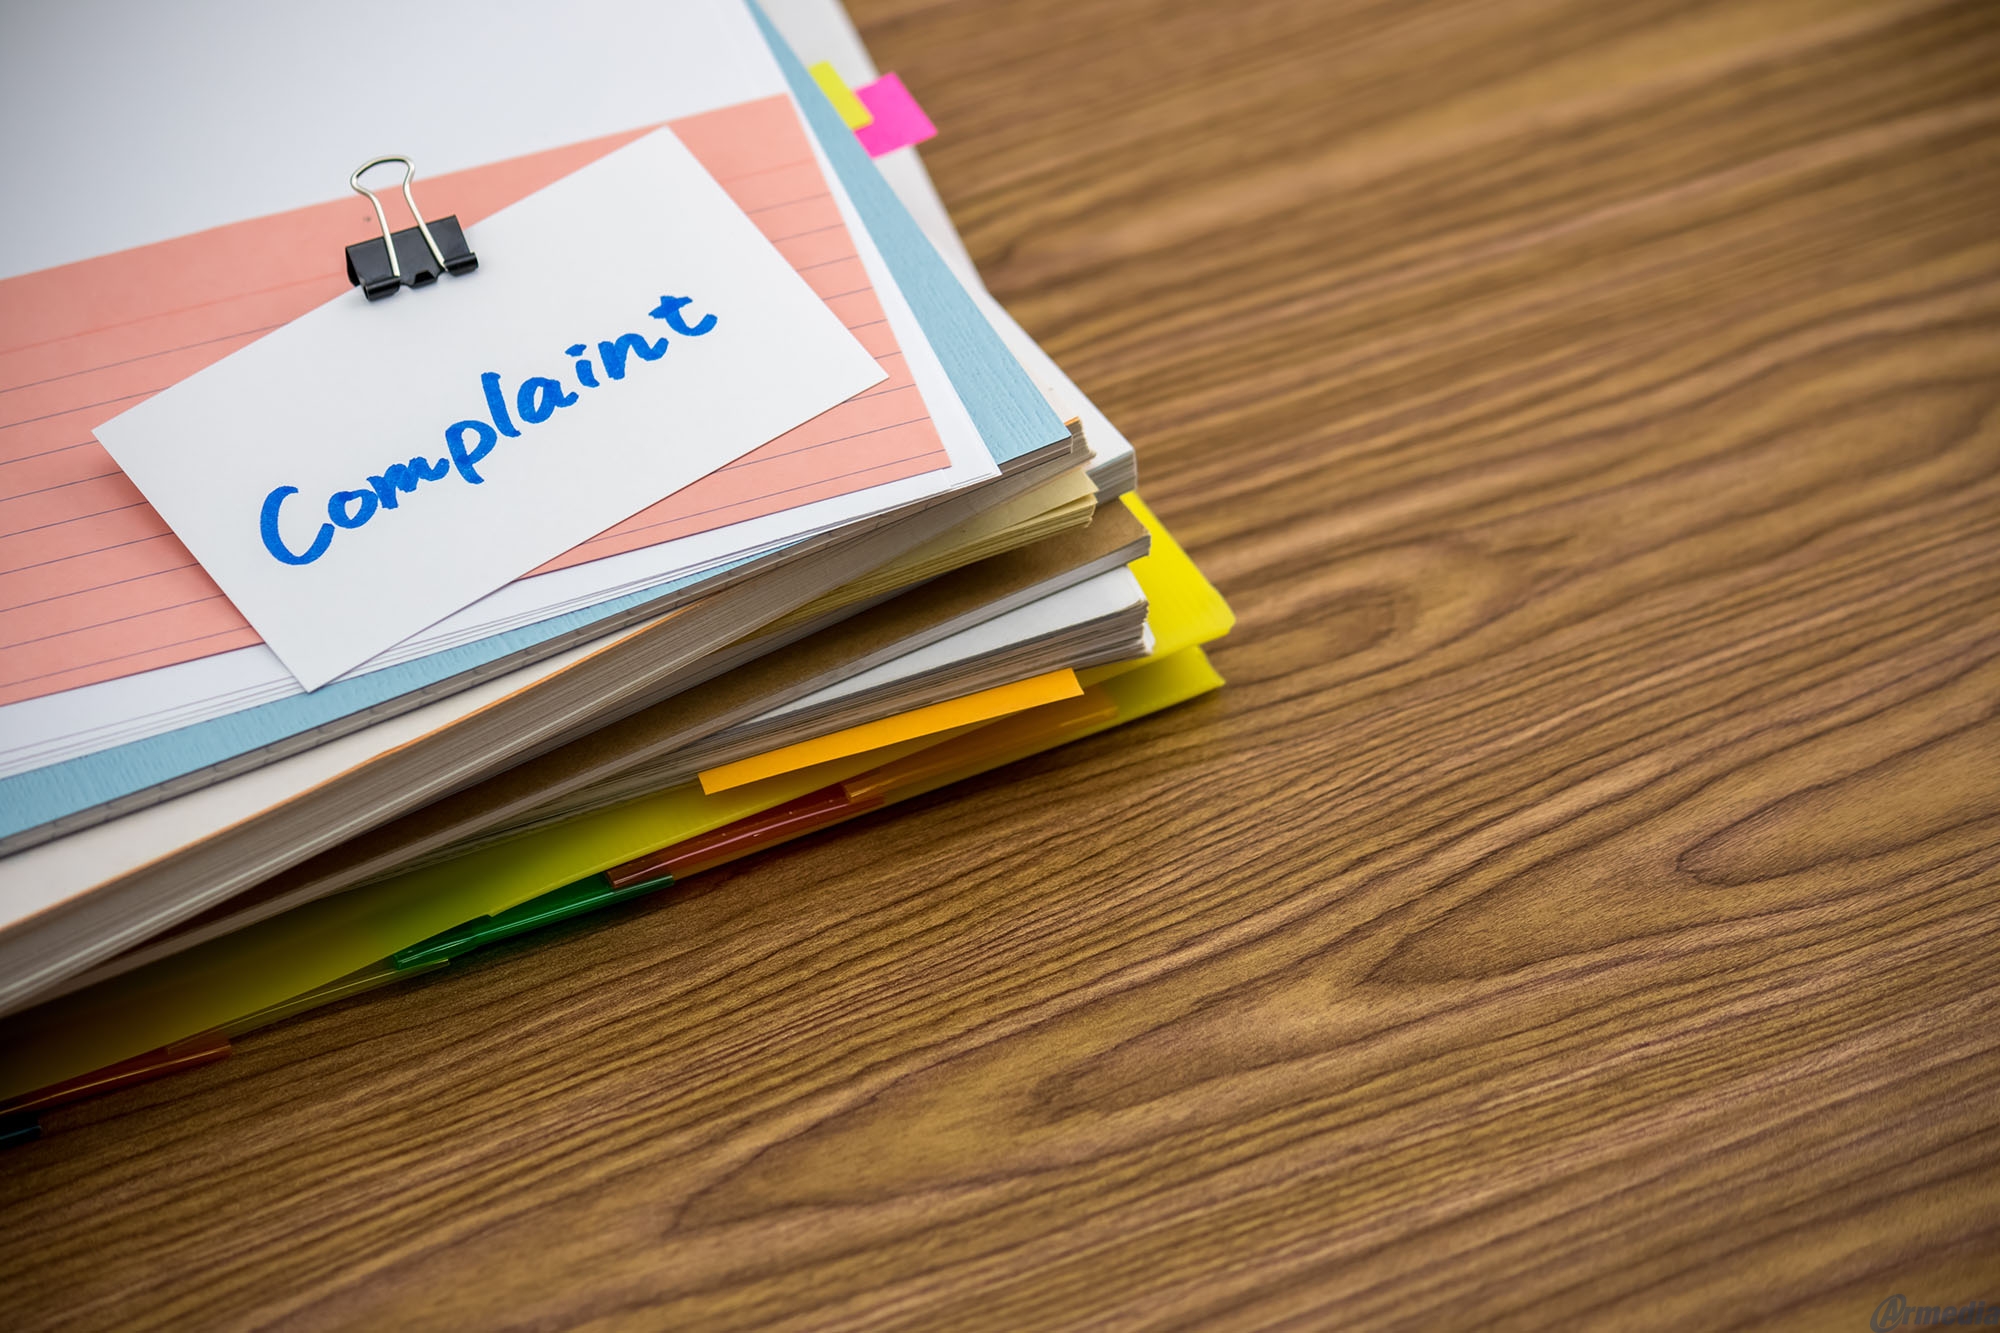 Complaint
Armedia